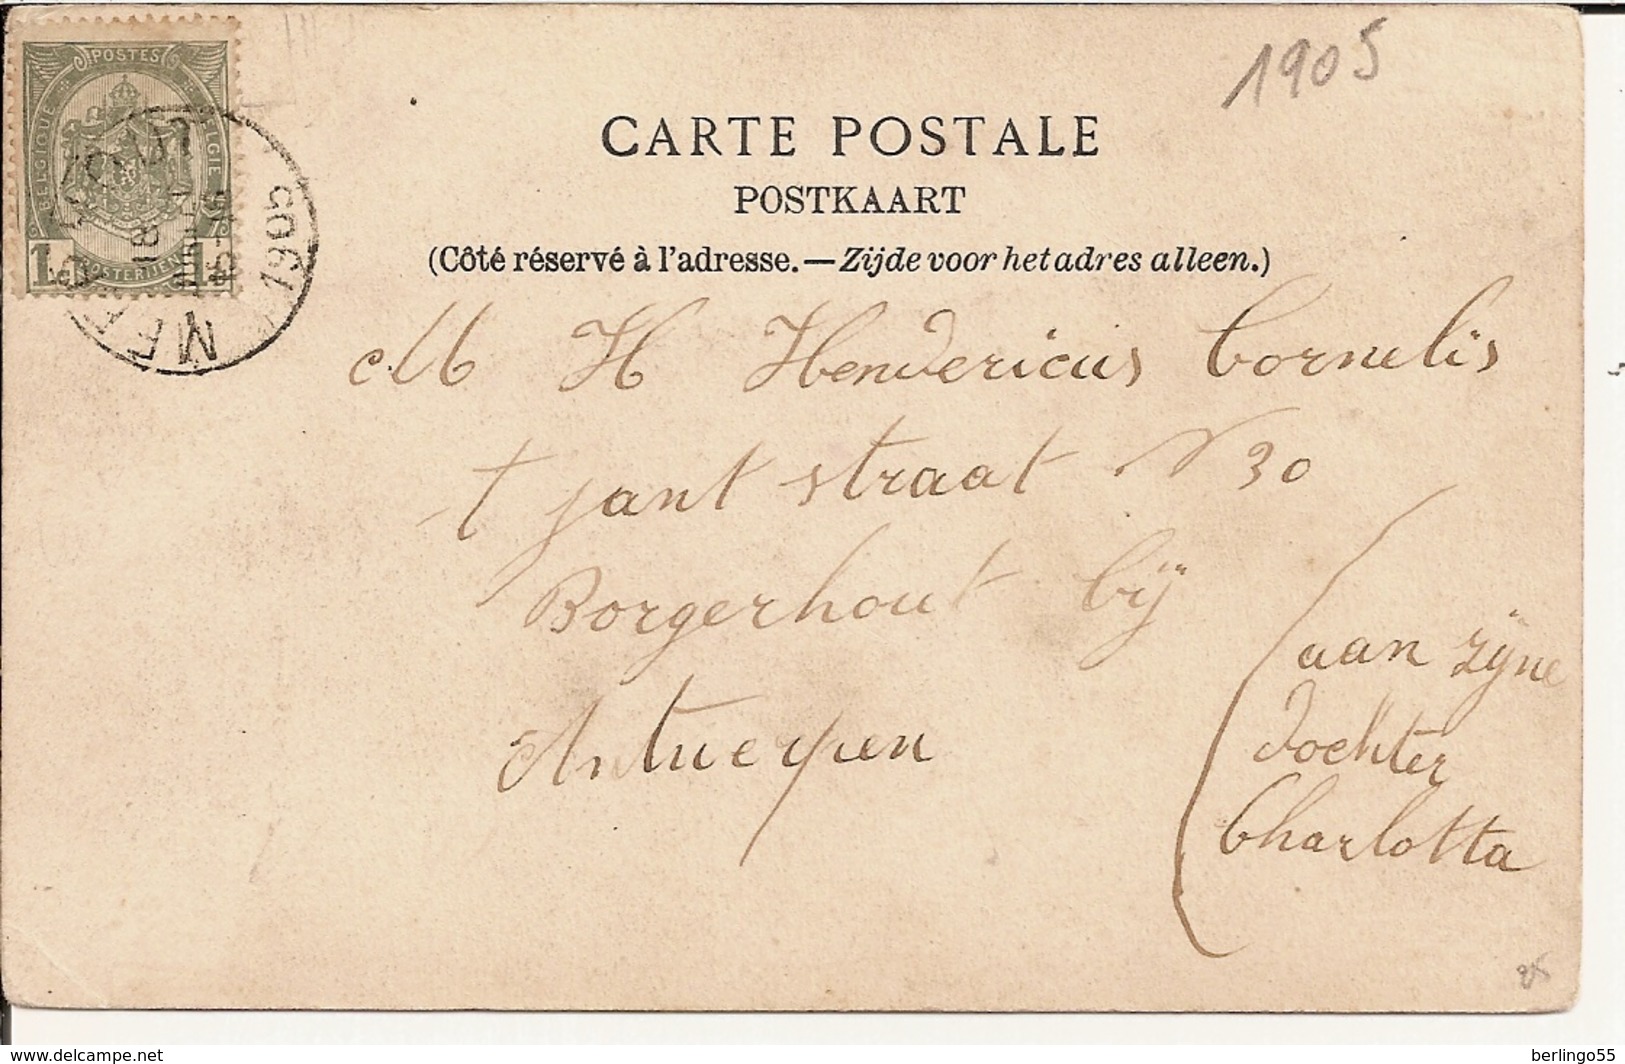 1905
POSTES
BELGIQUE
BELGIE
POSTERIJEN
1 1
18
1905
CARTE POSTALE
POSTKAART
(Côté réservé à l'adresse. — Zijde voor het adres alleen.)
M H Hendericus Cornelis
t jant straat N 30
Borgerhout bÿ
Antwerpen
(aan zÿne
Dochter
Charlotta
www.delcampe.net
berlingo55